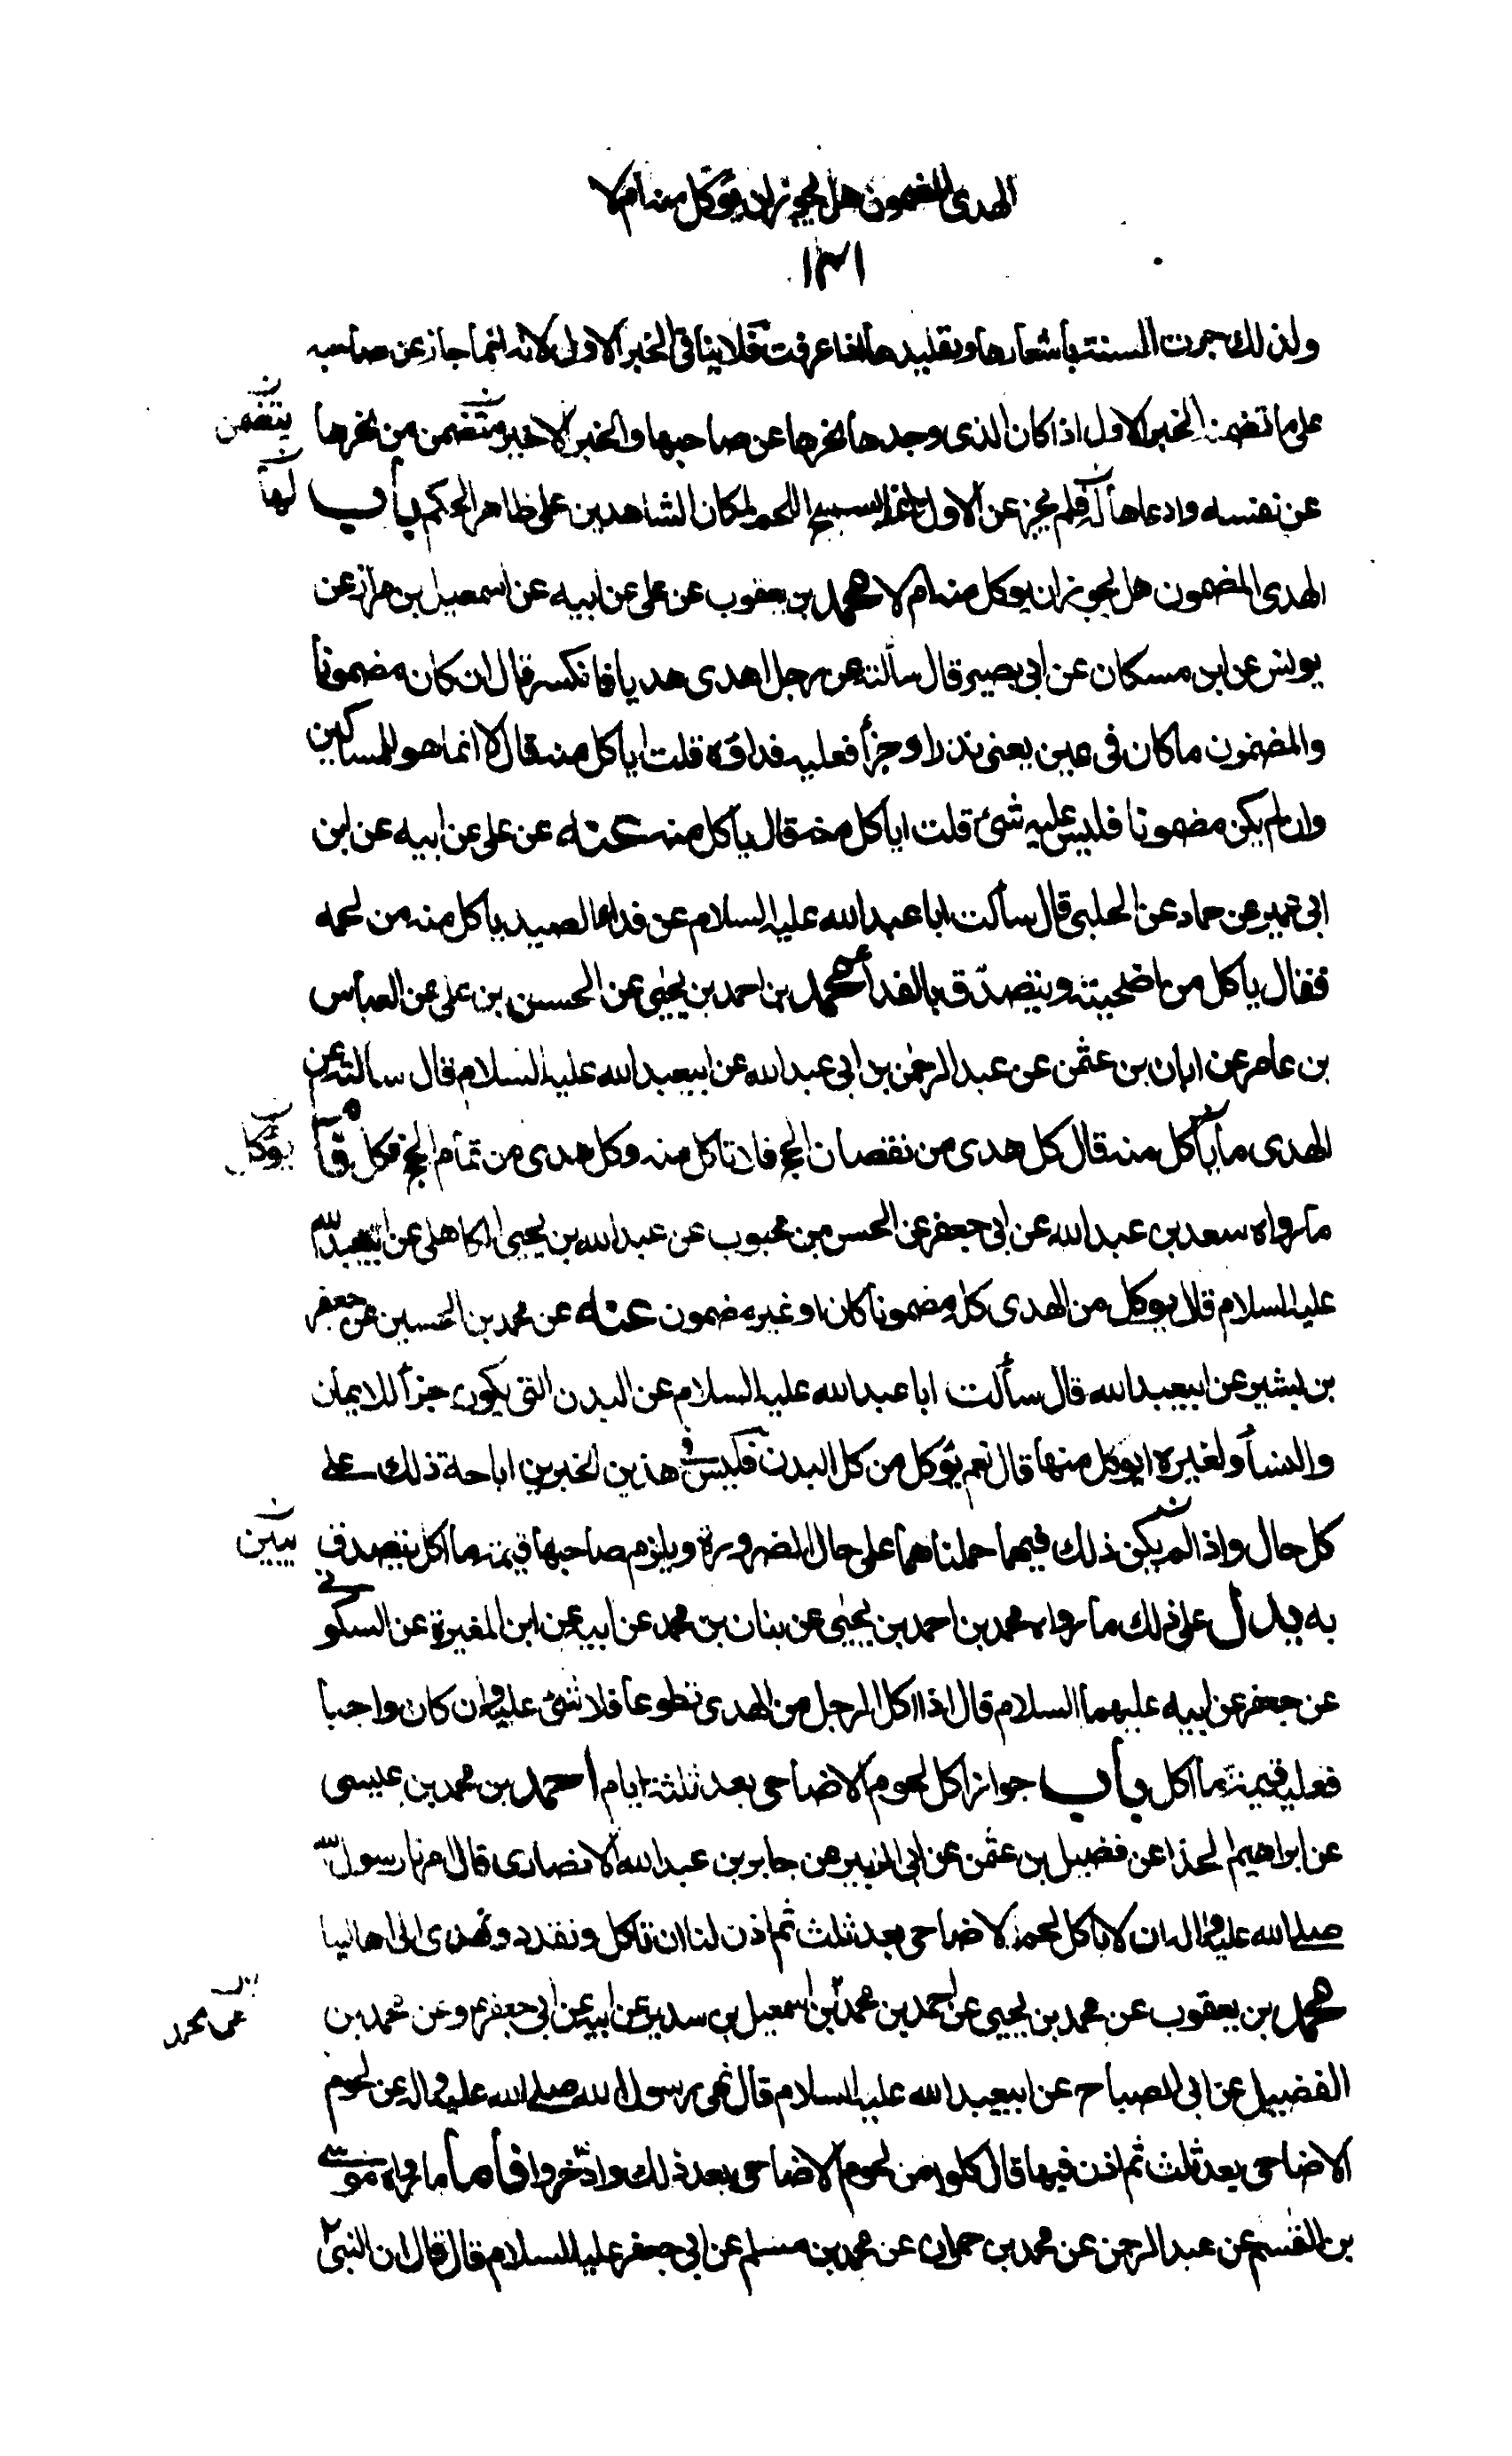 الهدى المضمون هل يجوز ان يؤكل منه ام لا
١٣١
ولذلك جرت السنة باشعارها وتقليدها عرفت فلاينافى الخبر الاول لانه انما جاز عن صاحبه
على ما تضمنه الخبر الاول اذا كان الذى وجدها نحرها عن صاحبها والخبر الاخير متضمن من نحرها
يتضمن
عن نفسه وادعاها له فلم يجز عن الاول اللحم لمكان الشاهدين على ظاهر الحكم باب
لها
الهدى المضمون هل يجوز ان يوكل منه ام لا محمد بن يعقوب عن على عن ابيه عن اسمعيل بن مرار عن
يونس عن ابن مسكان عن ابى بصير قال سألته عن رجل اهدى هديا فانكسر قال ان كان مضمونا
والمضمون ما كان فى يمين يعنى نذرا وجزأ فعليه فداؤه قلت اياكل منه قال لا انما هو للمساكين
وان لم يكن مضمونا فليس عليه شئ قلت اياكل منه قال ياكل منه عنه عن على عن ابيه عن ابن
ابى عمير عن حماد عن الحلبى قال سألت ابا عبدالله عليه السلام عن فداء الصيد ياكل منه من لحمه
فقال ياكل من اضحيته ويتصدّق بالفدأ محمد بن احمد بن يحيى عن الحسن بن على عن العباس
بن عامر عن ابان بن عثمن عن عبد الرحمن بن ابى عبدالله عن ابيعبدالله عليه السلام قال سالته عن
الهدى ما يأكل منه قال كل هدى من نقصان الحج فلا تاكل منه وكل هدى من تمام الحج فكل فأ
يؤكل
ما رواه سعد بن عبدالله عن ابى جعفر عن الحسن بن محبوب عن عبدالله بن يحيى الكاهلى عن ابيعبدالله
عليه السلام قال يوكل من الهدى كله مضمونا كان او غير مضمون عنه عن محمد بن الحسين عن جعفر
بن بشير عن ابيعبدالله قال سألت ابا عبدالله عليه السلام عن البدن التى يكون جزأ للايمان
والنسأ ولغيره ايوكل منها قال نعم يؤكل من كل البدن فليس فى هذين الخبرين اباحة ذلك على
كل حال واذا لم يكن ذلك فيهما حملناهما على حال الضرورة ويلزم صاحبها قيمة ما اكل يتصدق
يبين
به يدل على ذلك ما رواه محمد بن احمد بن يحيى عن بنان بن محمد عن ابيه عن ابن المغيرة عن السكونى
عن جعفر عن ابيه عليهما السلام قال اذا اكل الرجل من الهدى تطوعا فلا شئ عليه وان كان واجبا
فعليه قيمة ما اكل باب جواز اكل لحوم الاضاحى بعد ثلثة ايام احمد بن محمد بن عيسى
عن ابراهيم الحذا عن فضيل بن عثمن عن ابى الزبير عن جابر بن عبدالله الانصارى قال امرنا رسول الله
صلى الله عليه واله ان لا ناكل لحم الاضاحى بعد ثلث ثم اذن لنا ان ناكل ونقدد ونهدى الى اهالينا
محمد بن يعقوب عن محمد بن يحيى عن احمد بن محمد بن اسمعيل بن سدير عن ابيه عن ابى جعفر ع وعن محمد بن
عن محمد
الفضيل عن ابى الصباح عن ابيعبدالله عليه السلام قال نهى رسول الله صلى الله عليه واله عن لحوم
الاضاحى بعد ثلث ثم اذن فيها قال كلوا من لحوم الاضاحى بعد ذلك وادّخروا فأما ما رواه موسى
بن القسم عن عبد الرحمن عن محمد بن حمران عن محمد بن مسلم عن ابى جعفر عليه السلام قال قال ان النبى